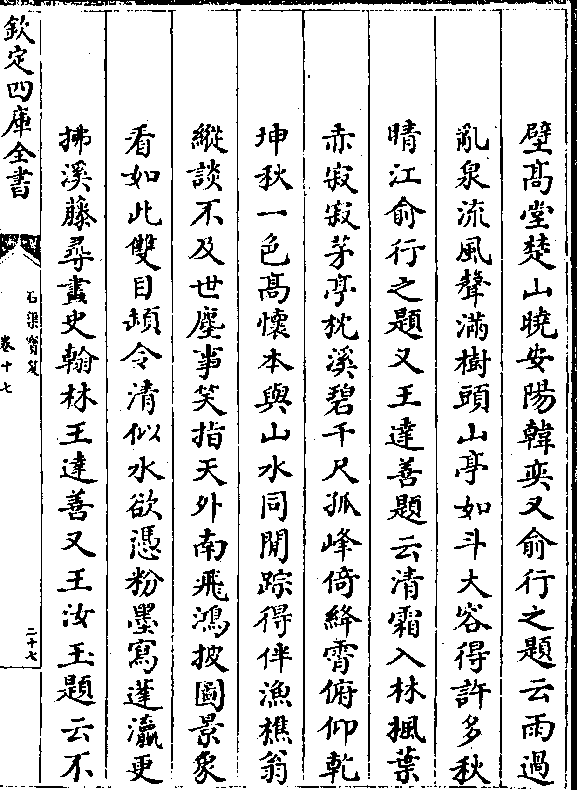 壁髙堂楚山曉安陽韓奕又俞行之題云雨過
亂泉流風聲滿樹頭山亭如斗大容得許多秋
晴江俞行之題又王達善題云清霜入林楓葉
赤寂寂茅亭枕溪碧千尺孤峰倚絳霄俯仰乾
坤秋一色髙懷本與山水同閒踪得伴漁樵翁
縱談不及世塵事笑指天外南飛鴻披圖景象
看如此雙目頼令清似水欲憑粉墨寫蓬瀛更
拂溪藤尋畫史翰林王達善又王汝玉題云不
欽定四庫全書
石渠寳笈
卷十七
二十七